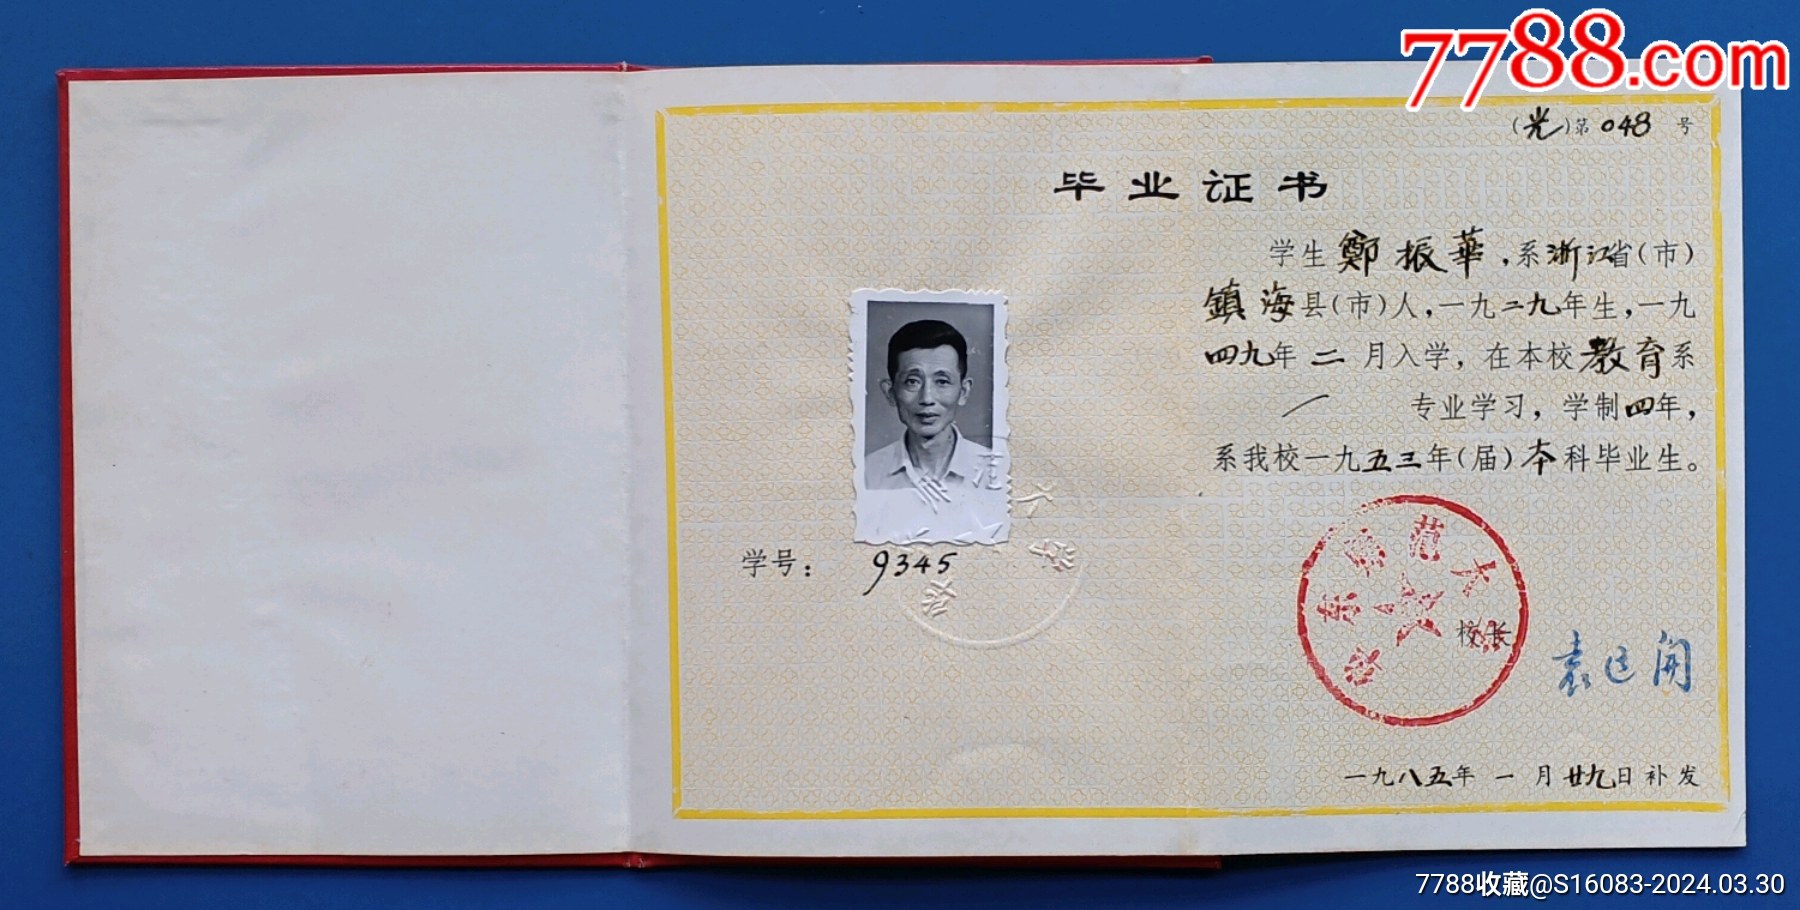 7788.com
(光)第048号
毕业证书
学生鄭振華,系浙江省(市)
鎮海县(市)人,一九二九年生,一九
四九年二月入学,在本校教育系
/专业学习,学制四年,
系我校一九五三年(届)本科毕业生。
学号:9345
华东师范大学
校长
一九八五年一月廿九日补发
7788收藏@S16083-2024.03.30